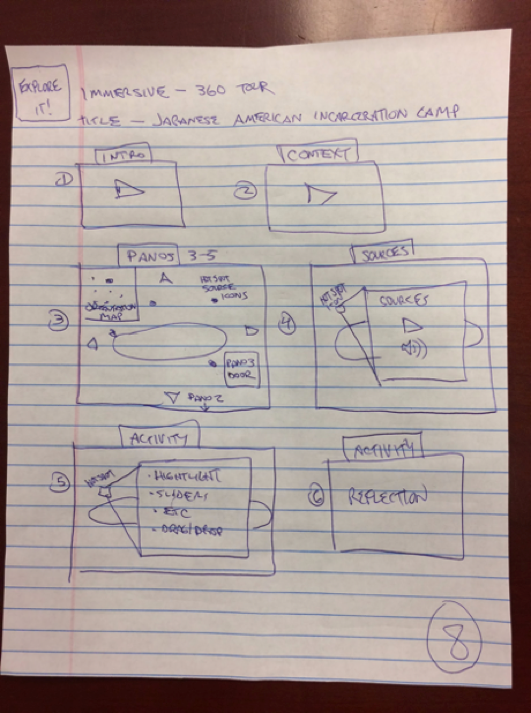 EXPLORE
IT!
IMMERSIVE - 360 TOUR
TITLE - JAPANESE AMERICAN INCARCERATION CAMP
INTRO
1
CONTEXT
2
PANOS 3-5
3
ORIENTATION
MAP
HOTSPOT
SOURCE
ICONS
PANO 3
DOOR
PANO 2
SOURCES
4
HOTSPOT
SOURCES
ACTIVITY
5
HOTSPOT
· HIGHLIGHT
· SLIDERS
· ETC
· DRAG/DROP
ACTIVITY
6
REFLECTION
8